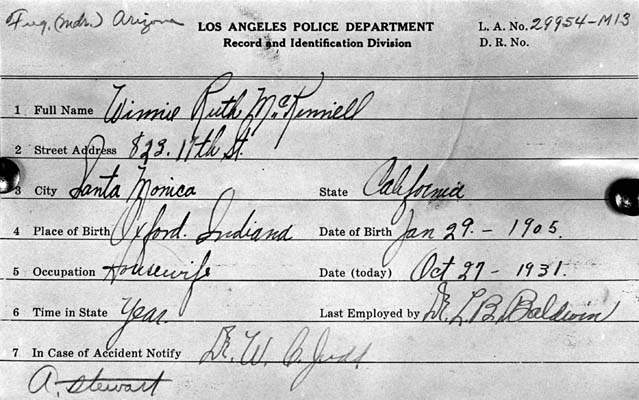 Fug. (mdr.) Arizona
LOS ANGELES POLICE DEPARTMENT
Record and Identification Division
L. A. No. 29954-M13
D. R. No.
1 Full Name Winnie Ruth McKinnell
2 Street Address 823. 17th St.
3 City Santa Monica State California
4 Place of Birth Oxford. Indiana Date of Birth Jan 29. - 1905.
5 Occupation Housewife Date (today) Oct 27 - 1931.
6 Time in State Year. Last Employed by Dr. L. B. Baldwin
7 In Case of Accident Notify Dr. W. C. Judd
A. Stewart